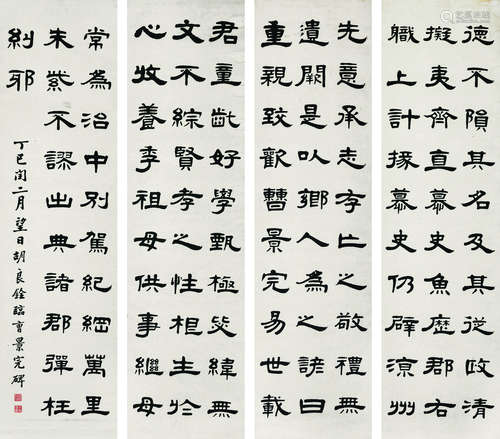 君童齔好學甄極毖緯無
文不綜賢孝之性相生於
心收養季祖母供事繼母
先意承志存亡之敬禮無
遺闕是以鄉人為之諺曰
重親致歡曹景完易世載
德不隕其名及其從政清
擬夷齊直慕史魚歷郡右
職上計掾慕史仍辟涼州
常為治中別駕紀綱萬里
朱紫不謬出典諸郡彈枉
糾邪
丁巳閏二月望日胡良銓臨曹景完碑